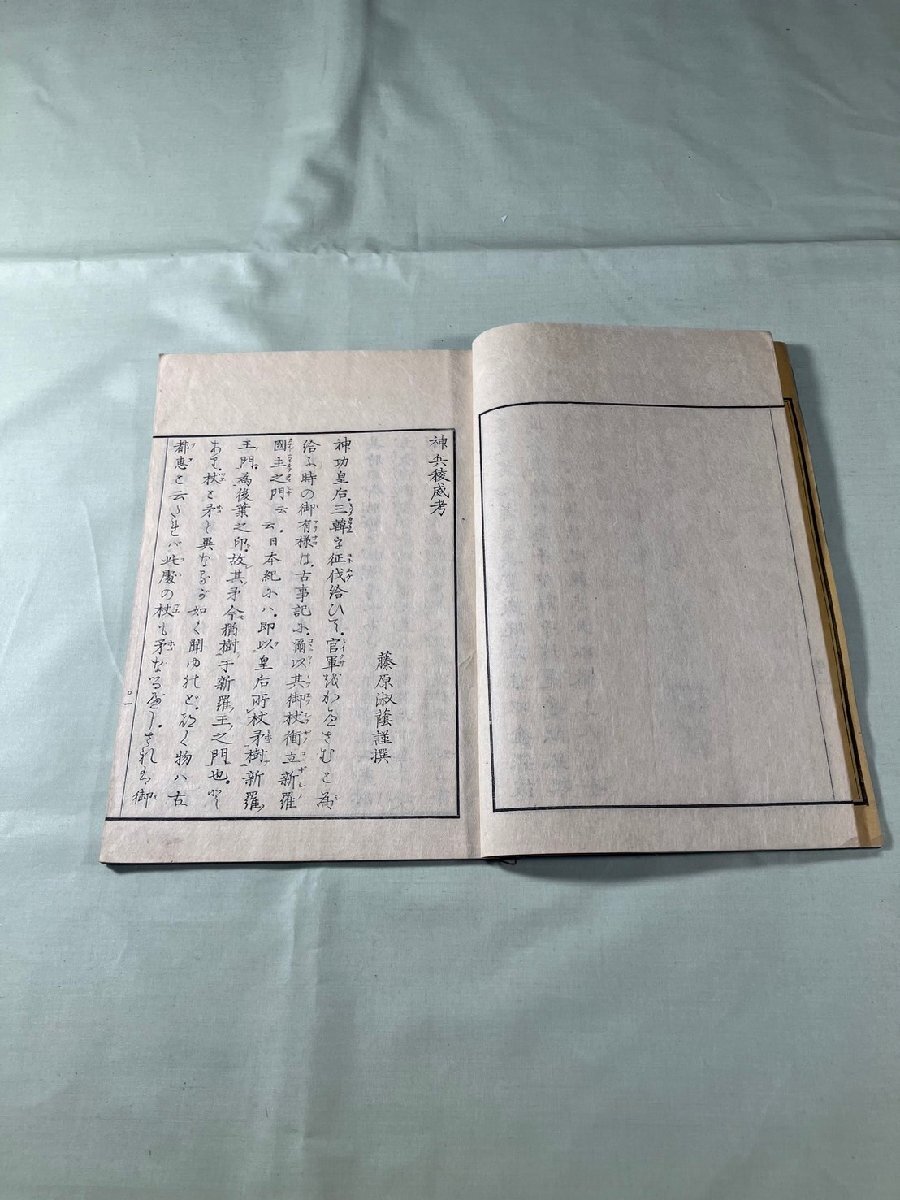 神兵稜威考
藤原淑蔭謹撰
神功皇后三韓を征伐給ひて官軍をかへさむと為
給ふ時の御有様は古事記に爾以其御杖衝立新羅
國主之門云云日本紀には即以皇后所杖矛樹新羅
王門為後葉之印故其矛今猶樹于新羅王之門也と
ありて杖と矛と異なるが如く聞ゆれど物ハ古
都恵と云へれバ此處の杖も矛なるべしされば御